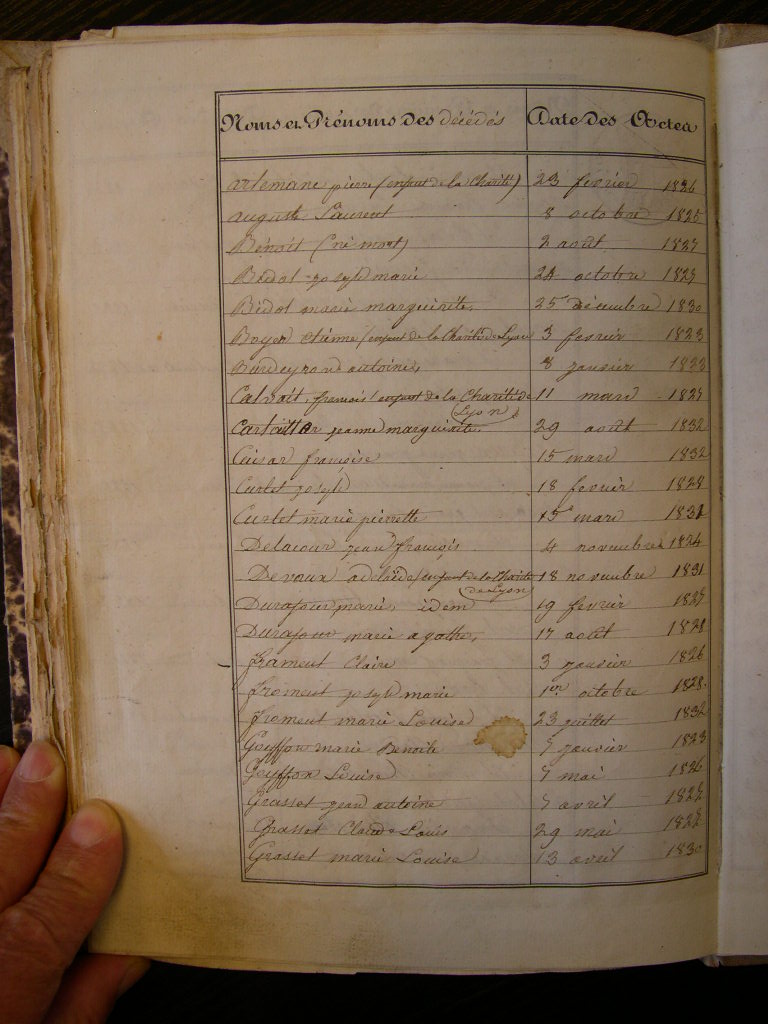 Noms et Prénoms des décédés Date des Actes
artemane pierre (enfant de la Charité) 23 fevrier 1826
auguste Laurent 8 octobre 1825
Benoit (né mort) 2 août 1827
Bedot joseph marie 24 octobre
Bedot marie marguerite, 25 décembre 1830
Boyer etienne (enfant de la Charité de Lyon 3 fevrier 1823
antoine, 8 janvier
françois (enfant de la Charité de 11 mars
Lyon)
jeanne marguerite, 29 août 1832
Cusar françoise 15 mars 1832
Curlet joseph 18 fevrier 1828
Curlet marie pierrette 15 mars 1831
Delacour jean françois 4 novembre 1824
Devaux (enfant de la Charité 18 novembre 1831
de Lyon)
Durafour marie, idem 19 fevrier
Durafour marie agathe, 17 août 1828
frament Claire 3 janvier 1826
froment joseph marie 1er octobre 1828.
froment marie Louise 23 juillet 1832
Goyffon marie Benoite 7 janvier 1823
Goyffon Louise 7 mai 1826
Grasset jean antoine 7 avril
Grasset Claude Louis 29 mai
Grasset marie Louise 13 avril 1830